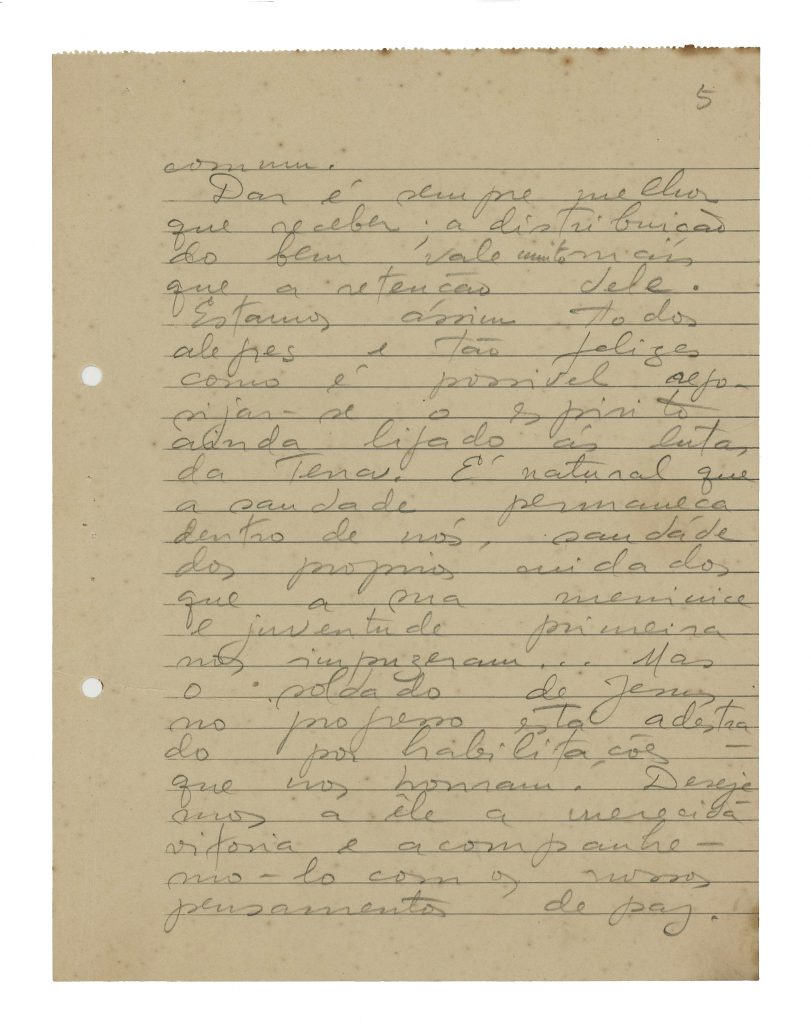 5
commum.
Dar é sempre melhor
que receber; a distribuição
do bem vale muito mais
que a retenção dele.
Estamos ássim todos
alegres e tão felizes
como é possivel rego-
sijar-se o espirito
ainda ligado ás lutas
da Terra. É natural que
a saudade permaneca
dentro de nós, saudáde
dos proprios cuidados
que a sua meninice
e juventude primeira
nos impuzeram... Mas
o soldado de Jesus
no progresso está adestra
do por habilitações -
que nos honram. Deseje
mos a êle a merecida
vitoria e acompanhe-
mo-lo com os nossos
pensamentos de paz.